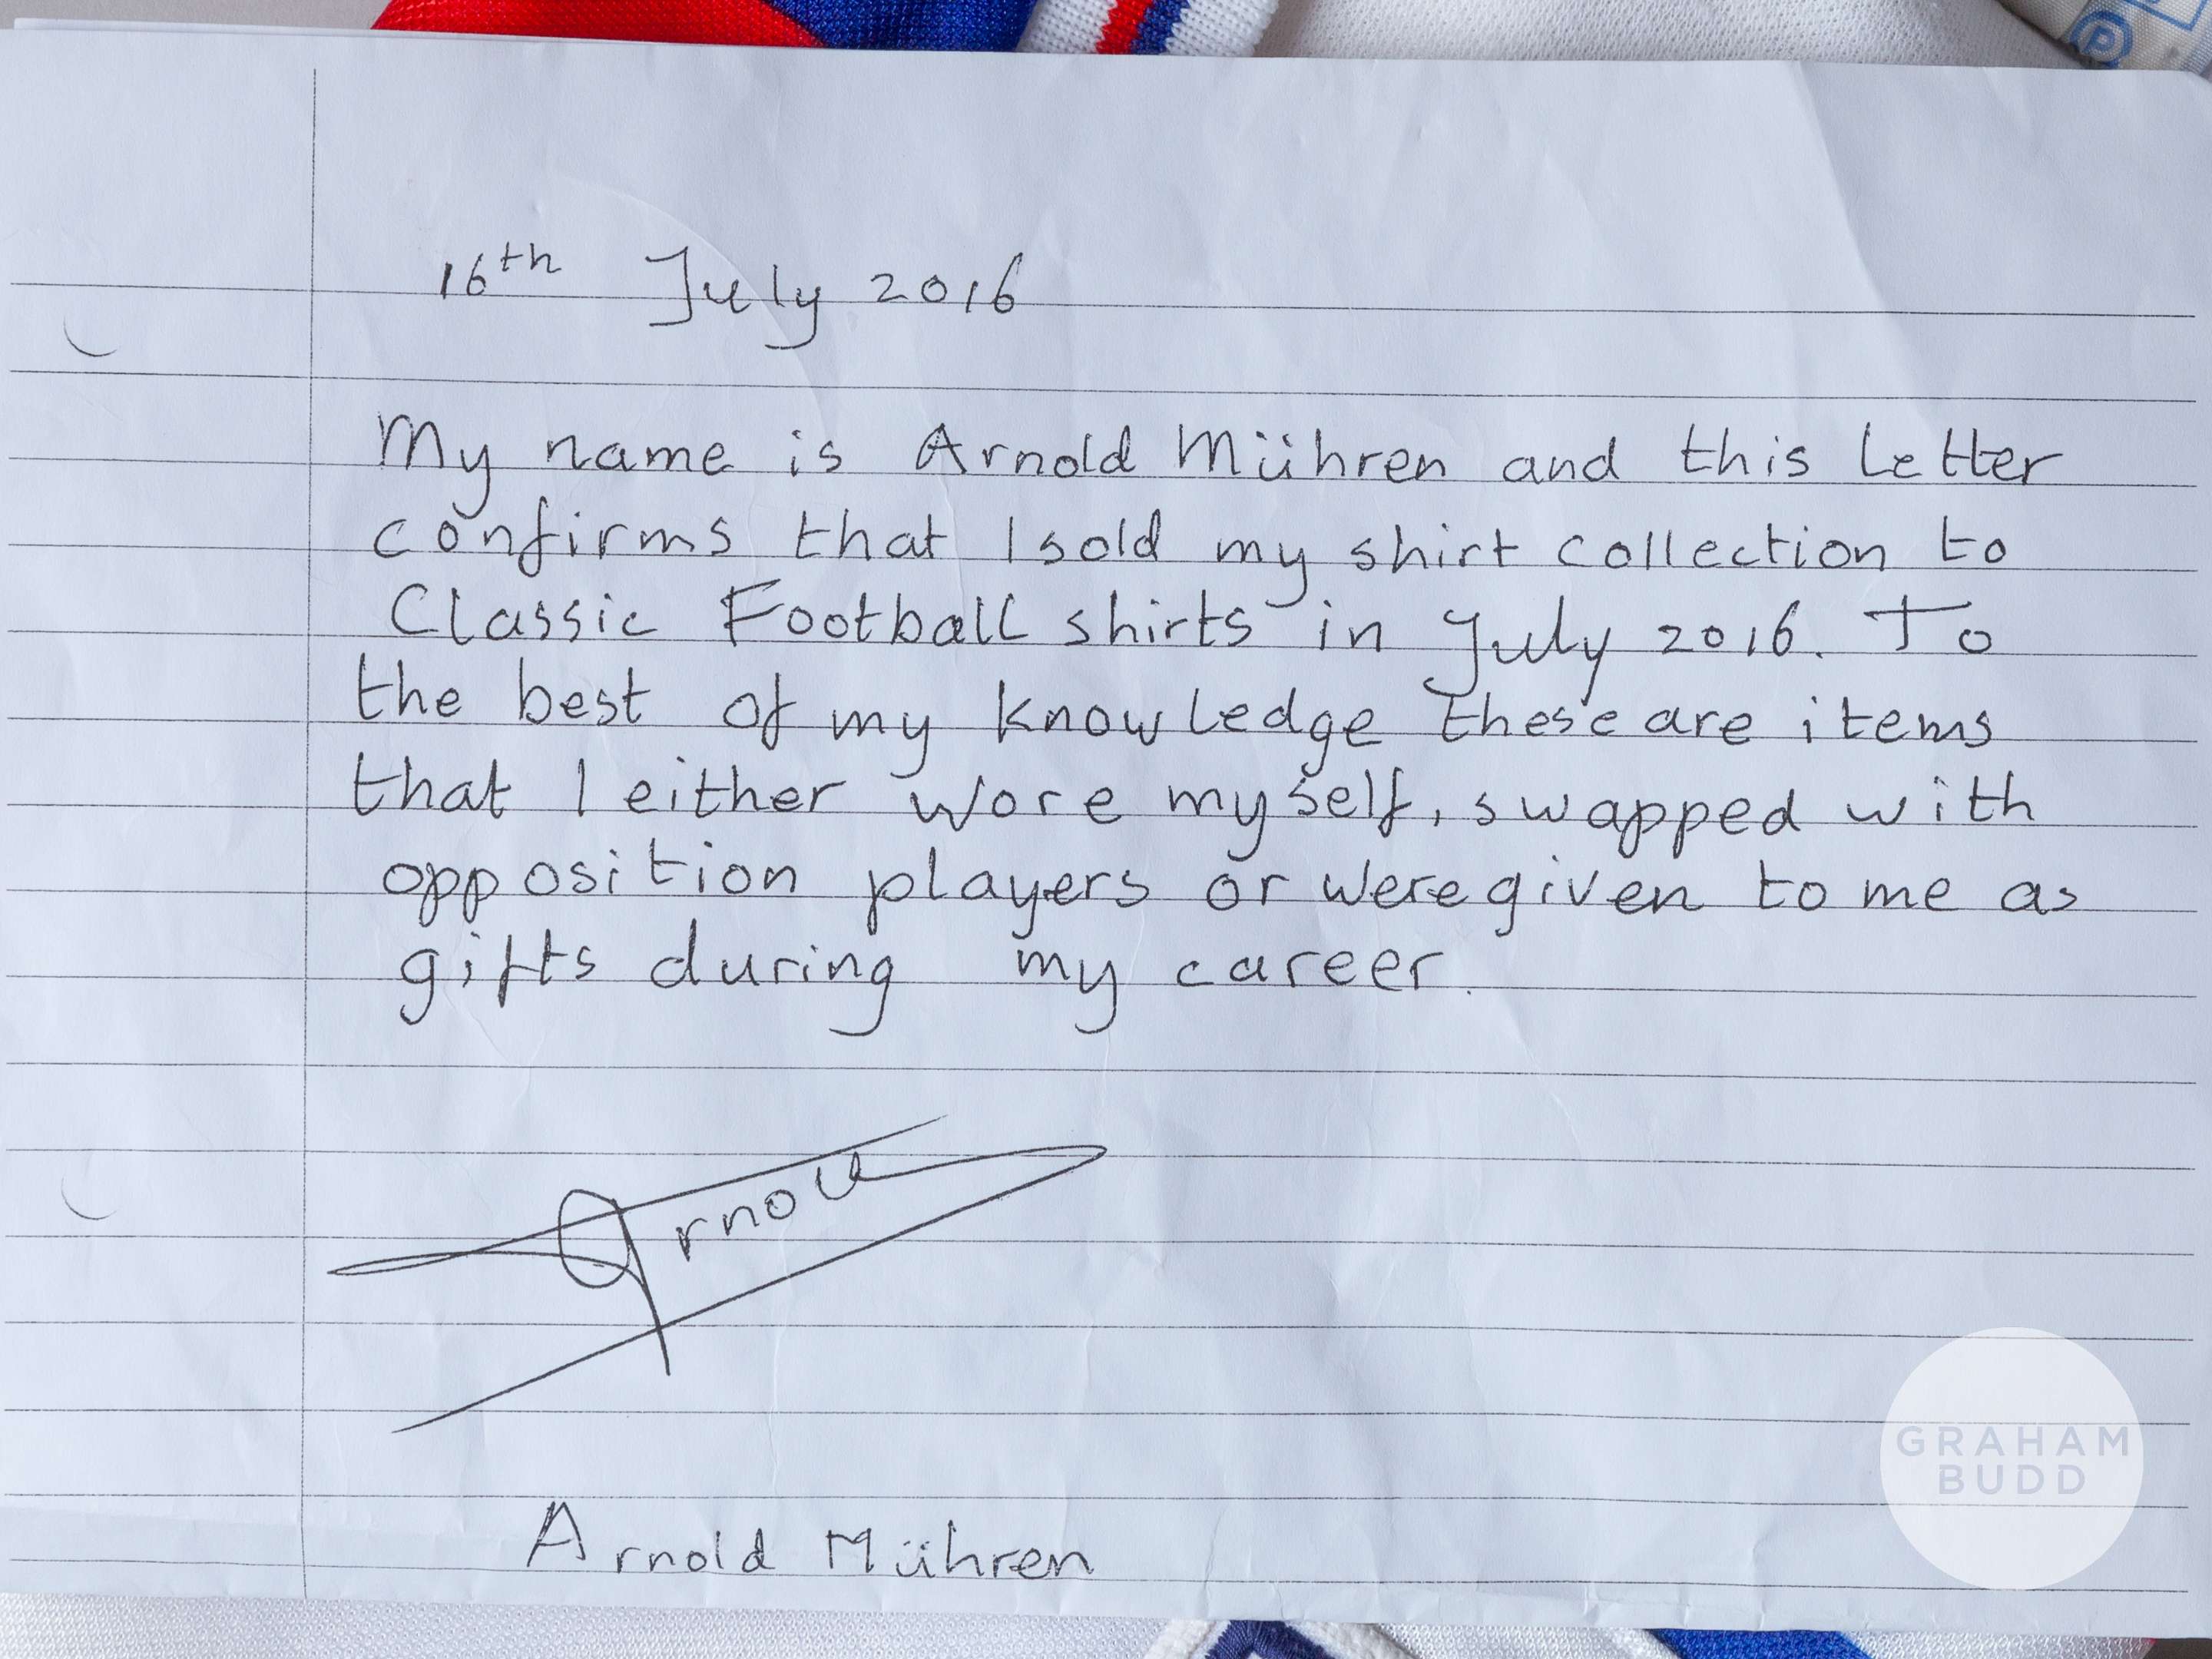 16th July 2016
My name is Arnold Mühren and this letter
confirms that I sold my shirt collection to
Classic Football shirts in July 2016. To
the best of my knowledge these are items
that I either wore myself, swapped with
opposition players or were given to me as
gifts during my career.
Arnold
Arnold Mühren
GRAHAM
BUDD
P